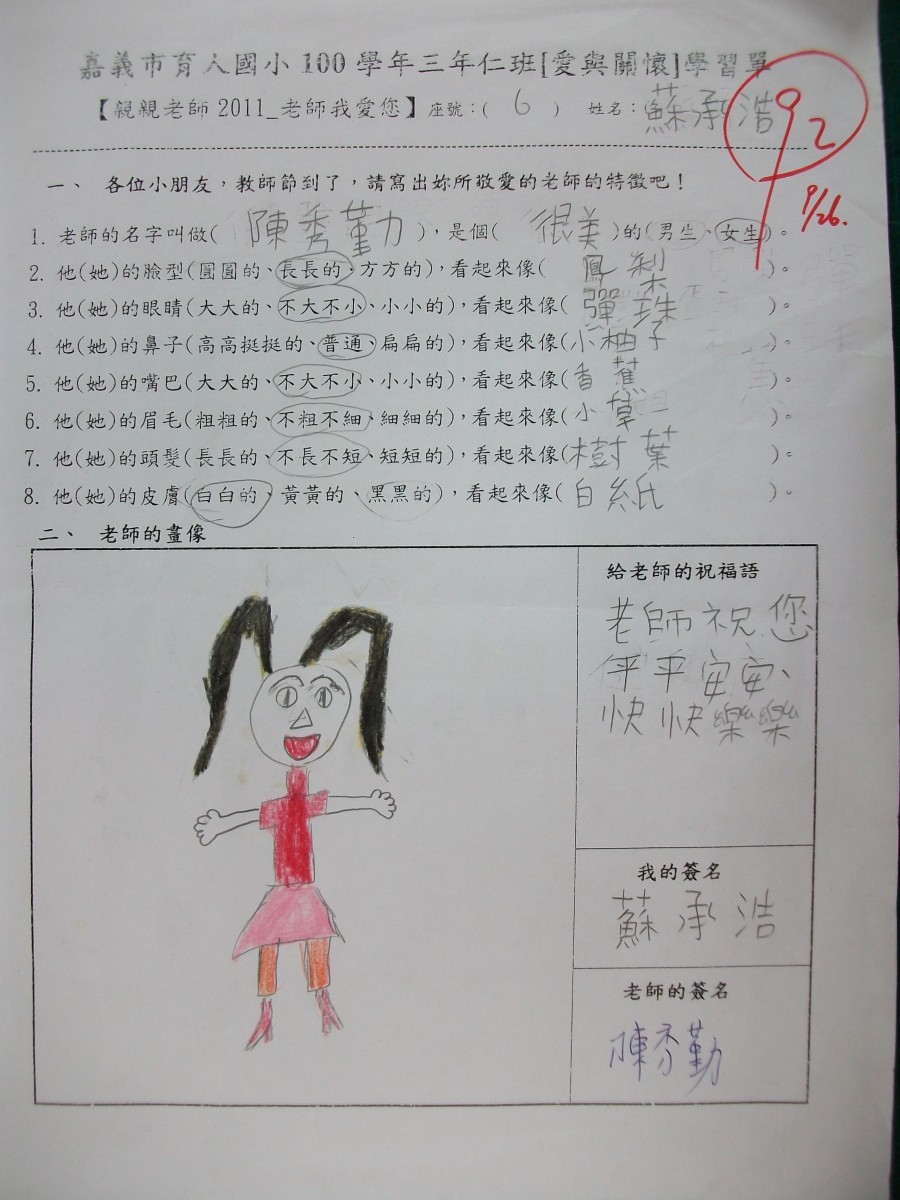 嘉義市育人國小100學年三年仁班[愛與關懷]學習單
【親親老師2011_老師我愛您】座號:( 6 ) 姓名:蘇承浩
92
9/26.
一、 各位小朋友,教師節到了,請寫出妳所敬愛的老師的特徵吧!
1. 老師的名字叫做( 陳秀勤 ),是個( 很美 )的(男生、女生)。
2. 他(她)的臉型(圓圓的、長長的、方方的),看起來像( 鳳梨 )。
3. 他(她)的眼睛(大大的、不大不小、小小的),看起來像( 彈珠 )。
4. 他(她)的鼻子(高高挺挺的、普通、扁扁的),看起來像(小柚子 )。
5. 他(她)的嘴巴(大大的、不大不小、小小的),看起來像(香蕉 )。
6. 他(她)的眉毛(粗粗的、不粗不細、細細的),看起來像(小草 )。
7. 他(她)的頭髮(長長的、不長不短、短短的),看起來像(樹葉 )。
8. 他(她)的皮膚(白白的、黃黃的、黑黑的),看起來像(白紙 )。
二、 老師的畫像
給老師的祝福語
老師祝您
平平安安、
快快樂樂
我的簽名
蘇承浩
老師的簽名
陳秀勤